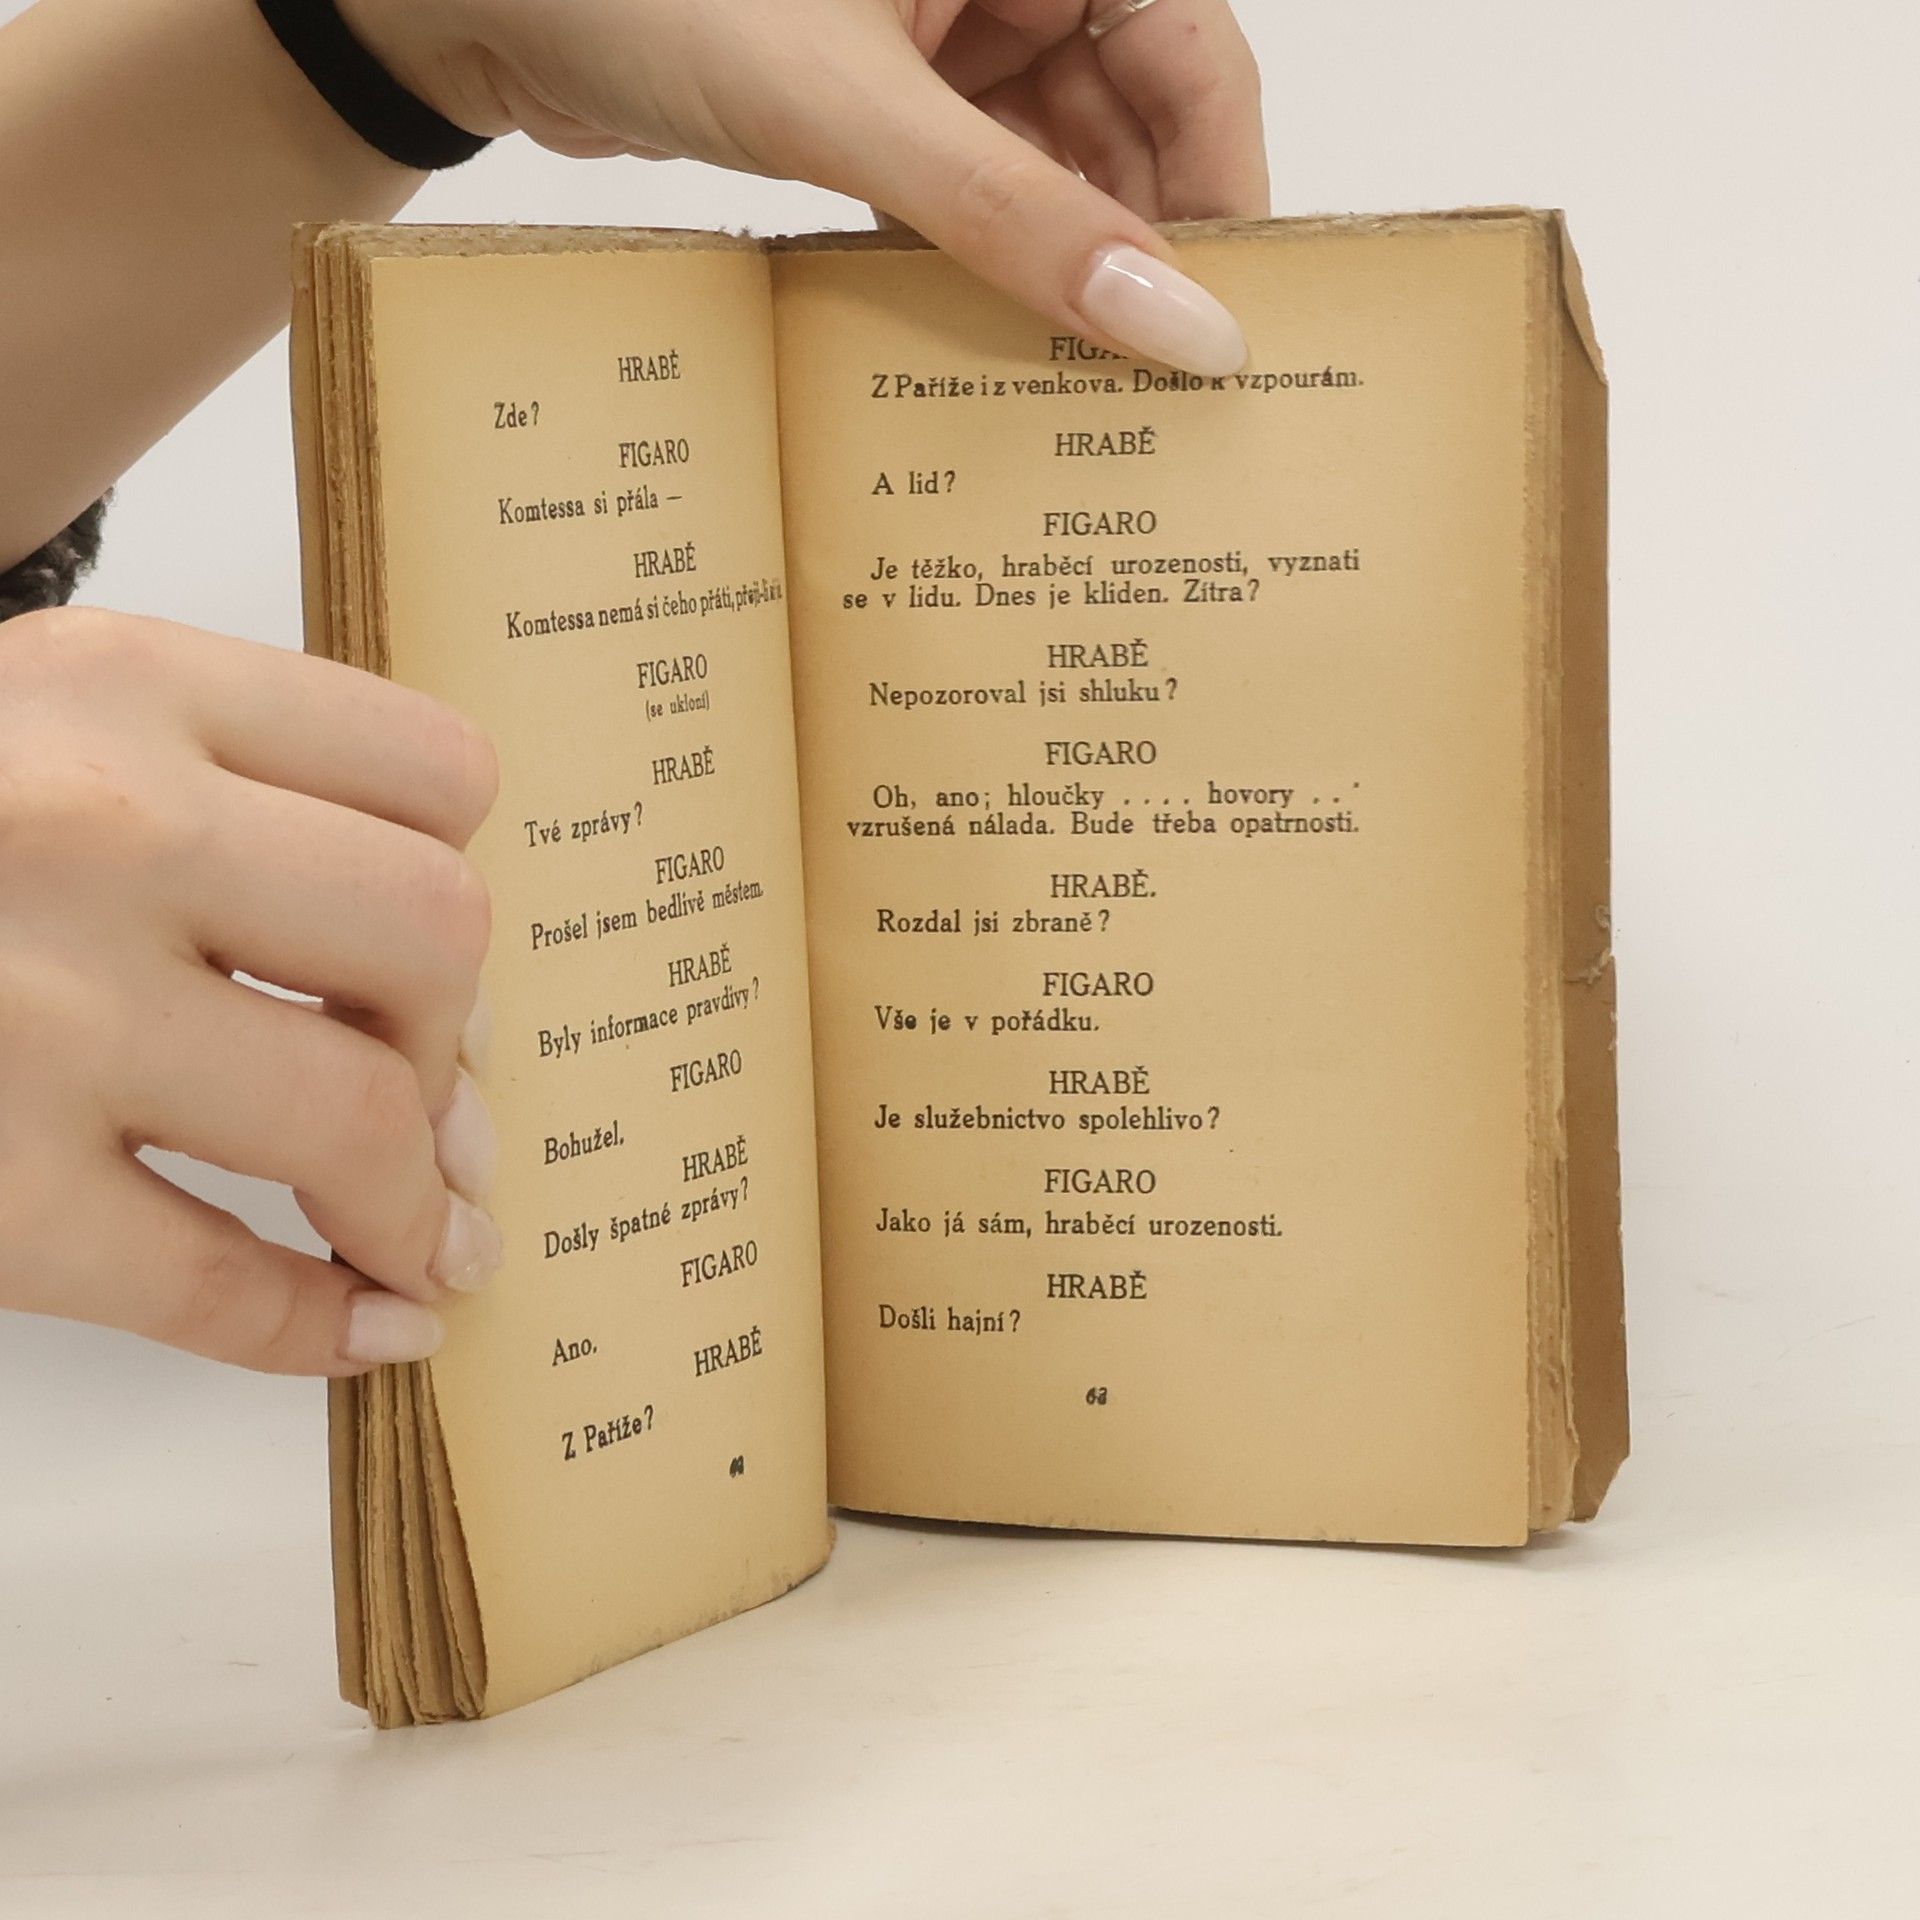 HRABĚ
Zde?
FIGARO
Komtessa si přála —
HRABĚ
Komtessa nemá si čeho přáti,
FIGARO
(se ukloní)
HRABĚ
Tvé zprávy?
FIGARO
Prošel jsem bedlivě městem.
HRABĚ
Byly informace pravdivy?
FIGARO
Bohužel.
HRABĚ
Došly špatné zprávy?
FIGARO
Ano.
HRABĚ
Z Paříže?
Z Paříže i z venkova. Došlo k vzpourám.
HRABĚ
A lid?
FIGARO
Je těžko, hraběcí urozenosti, vyznati
se v lidu. Dnes je kliden. Zítra?
HRABĚ
Nepozoroval jsi shluku?
FIGARO
Oh, ano; hloučky . . . . hovory . . .
vzrušená nálada. Bude třeba opatrnosti.
HRABĚ.
Rozdal jsi zbraně?
FIGARO
Vše je v pořádku.
HRABĚ
Je služebnictvo spolehlivo?
FIGARO
Jako já sám, hraběcí urozenosti.
HRABĚ
Došli hajní?